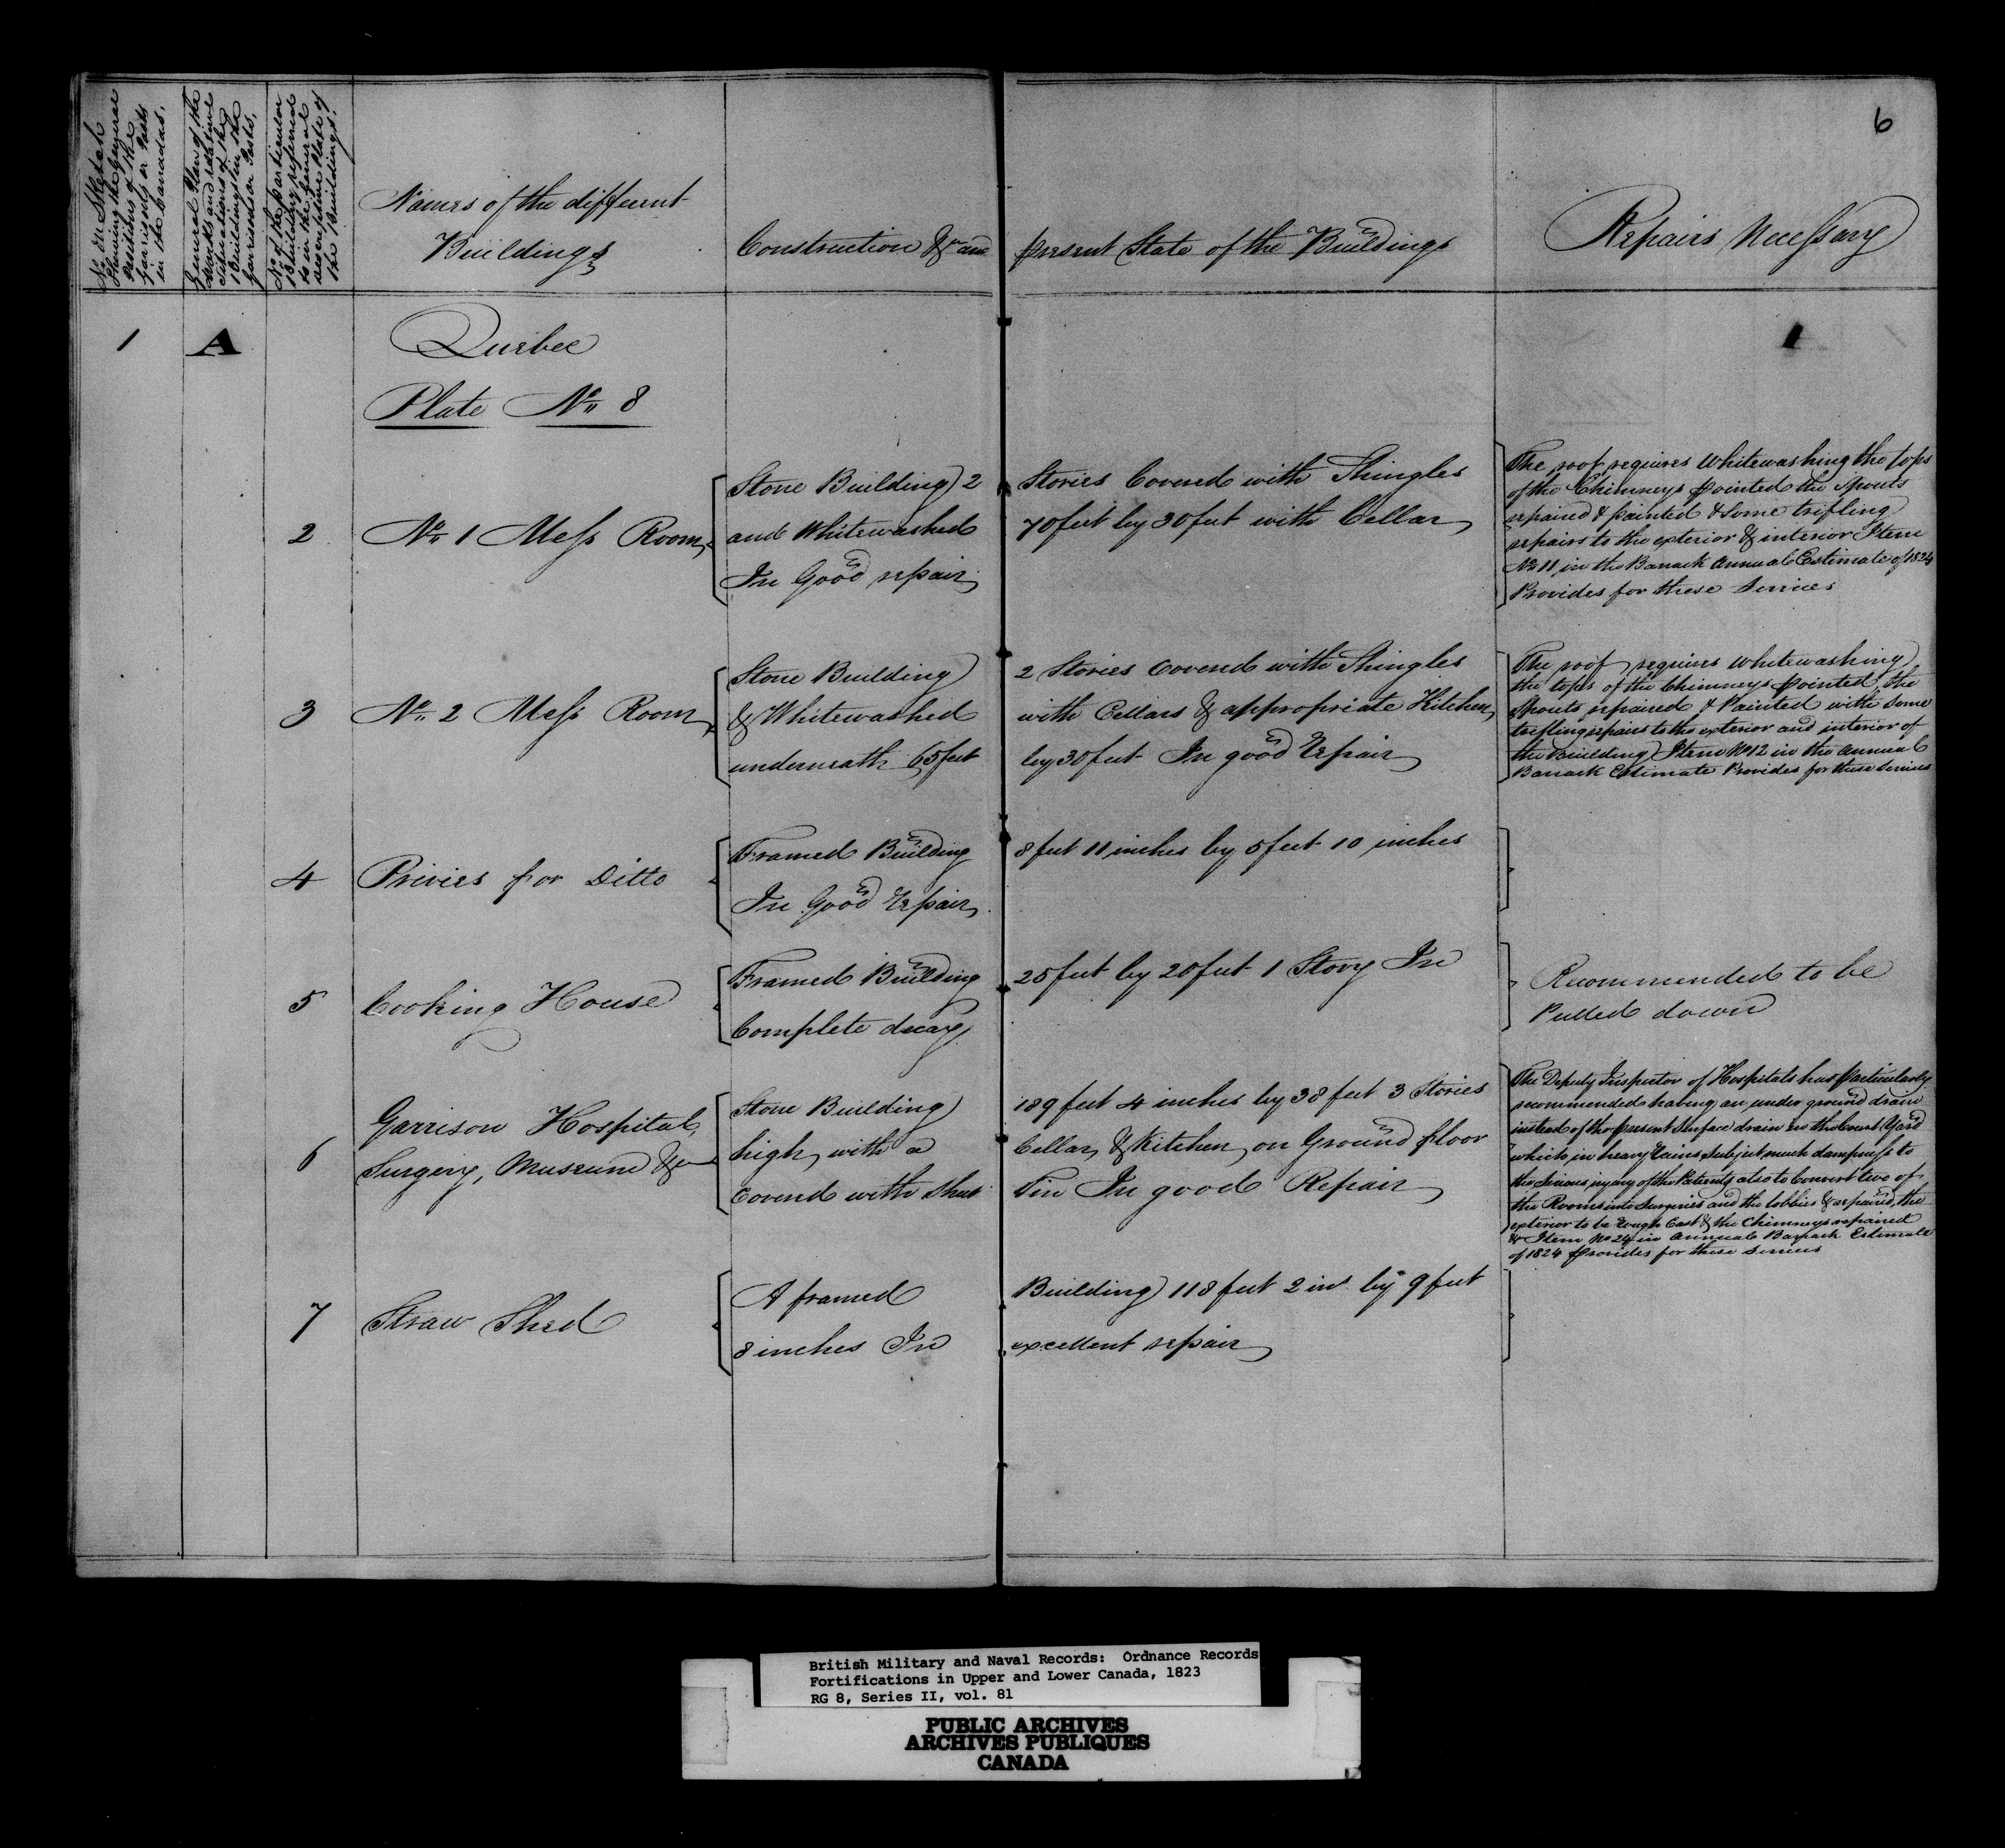 6
No on Sketch
Shewing the General
Positions of the
Garrisons or Posts
in the Canadas.
General Plan of the
Works and relative
situations of the
Buildings in the
Garrison or Posts.
No of the particular
Building referred
to in the General
descriptive Plate of
the Buildings.
Names of the different
Buildings
Construction &c and present State of the Buildings
Repairs Necessary
1 A
Quebec
Plate No 8
2 No 1 Mess Room
Stone Building 2 Stories Covered with Shingles
and Whitewashed 70 feet by 30 feet with Cellar
In Good repair
The roof requires Whitewashing the tops
of the Chimneys pointed the Spouts
repaired & painted & some trifling
repairs to the exterior & interior Item
No 11 in the Barrack Annual Estimate of 1824
Provides for these Services
3 No 2 Mess Room
Stone Building 2 Stories Covered with Shingles
& Whitewashed with Cellars & appropriate Kitchen
underneath 65 feet by 30 feet In good Repair
The roof requires Whitewashing
the tops of the Chimneys pointed, the
Spouts repaired & Painted with some
trifling repairs to the exterior and interior of
the Building Item No 12 in the Annual
Barrack Estimate Provides for these Services
4 Privies for Ditto
Framed Building 8 feet 11 inches by 5 feet 10 inches
In Good Repair
5 Cooking House
Framed Building 25 feet by 20 feet 1 Story In
Complete decay
Recommended to be
Pulled down
6 Garrison Hospital,
Surgery, Museum &c
Stone Building 189 feet 4 inches by 38 feet 3 Stories
high with a Cellar & Kitchen on Ground floor
Covered with Sheet Tin In good Repair
The Deputy Inspector of Hospitals has Particularly
recommended having an under ground drain
instead of the present Surface drain in the Court Yard
which in heavy Rains Subject much dampness to
the Serious injury of the Patients also to Convert two of
the Rooms into Surgeries and the lobbies & repaired, the
exterior to be Rough Cast & the Chimneys repaired
& Item No 24 in Annual Barrack Estimate
of 1824 provides for these Services
7 Straw Shed
A framed Building 118 feet 2 ins by 9 feet
8 inches In excellent repair
British Military and Naval Records: Ordnance Records
Fortifications in Upper and Lower Canada, 1823
RG 8, Series II, vol. 81
PUBLIC ARCHIVES
ARCHIVES PUBLIQUES
CANADA